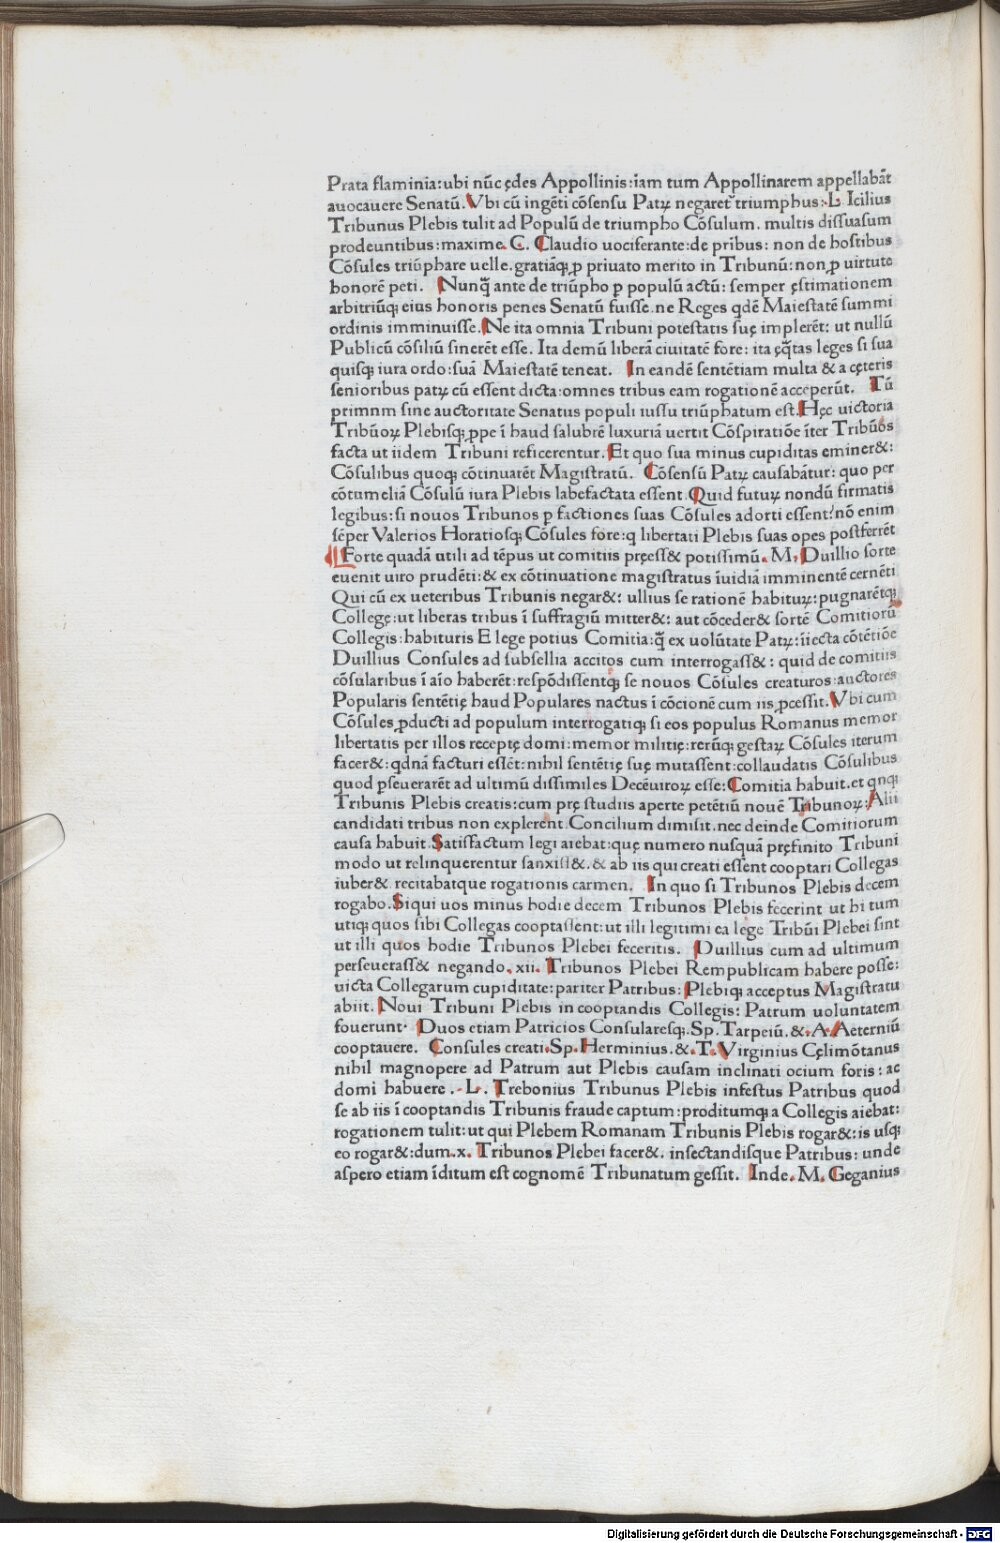 Prata flaminia:ubi nūc ędes Appollinis:iam tum Appollinarem appellabāt
auocauere Senatū. Vbi cū ingēti cōsensu Patꝝ negaret᷑ triumphus:.L. Icilius
Tribunus Plebis tulit ad Populū de triumpho Cōsulum. multis dissuasum
prodeuntibus:maxime. C. Claudio uociferante:de pribus: non de hostibus
Cōsules triūphare uelle. gratiāqꝫ ꝓ priuato merito in Tribunū: non ꝓ uirtute
honorē peti. Nunq̄ ante de triūpho p populū actū: semper ęstimationem
arbitriūqꝫ eius honoris penes Senatū fuisse. ne Reges qdē Maiestatē summi
ordinis imminuisse. Ne ita omnia Tribuni potestatis suę implerēt: ut nullū
Publicū cōsiliū sinerēt esse. Ita demū liberā ciuitatē fore: ita ęq̄tas leges si sua
quisqꝫ iura ordo:suā Maiestatē teneat. In eandē sentētiam multa & a cęteris
senioribus patꝝ cū essent dicta:omnes tribus eam rogationē acceperūt. Tū
primnm sine auctoritate Senatus populi iussu triūphatum est. Hęc uictoria
Tribūoꝝ Plebisqꝫ ꝓpe ī haud salubrē luxuriā uertit Cōspiratiōe īter Tribūos
facta ut iidem Tribuni reficerentur. Et quo sua minus cupiditas eminer&:
Cōsulibus quoqꝫ cōtinuarēt Magistratū. Cōsensū Patꝝ causabātur: quo per
cōtumeliā Cōsulū iura Plebis labefactata essent. Quid futuꝝ nondū firmatis
legibus:si nouos Tribunos p factiones suas Cōsules adorti essent? nō enim
sēper Valerios Horatiosqꝫ Cōsules fore:q libertati Plebis suas opes postferrēt
Forte quadā utili ad tēpus ut comitiis pręess& potissimū. M. Duillio sorte
euenit uiro prudēti:& ex cōtinuatione magistratus īuidiā imminentē cernēti
Qui cū ex ueteribus Tribunis negar&: ullius se rationē habituꝝ:pugnarētqꝫ
Collegę:ut liberas tribus ī suffragiū mitter&: aut cōceder& sortē Comitiorū
Collegis:habituris E lege potius Comitia:q̄ ex uolūtate Patꝝ:iīecta cōtētiōe
Duillius Consules ad subsellia accitos cum interrogass&: quid de comitiis
cōsularibus ī aīo haberēt:respōdissentqꝫ se nouos Cōsules creaturos:auctores
Popularis sentētię haud Populares nactus ī cōcionē cum iis ꝓcessit. Vbi cum
Cōsules ꝓducti ad populum interrogatiqꝫ si eos populus Romanus memor
libertatis per illos receptę domi:memor militię:rerūqꝫ gestaꝝ Cōsules iterum
facer&: qdnā facturi essēt:nihil sentētię suę mutassent:collaudatis Cōsulibus
quod pseuerarēt ad ultimū dissimiles Decēuiroꝝ esse: Comitia habuit. et qnqꝫ
Tribunis Plebis creatis:cum prę studiis aperte petētiū nouē Tribunoꝝ: Alii
candidati tribus non explerent Concilium dimisit. nec deinde Comitiorum
causa habuit. Satisfactum legi aiebat:quę numero nusquā pręfinito Tribuni
modo ut relinquerentur sanxiss&. & ab iis qui creati essent cooptari Collegas
iuber& recitabatque rogationis carmen. In quo si Tribunos Plebis decem
rogabo. Siqui uos minus hodie decem Tribunos Plebis fecerint ut hi tum
utiqꝫ quos sibi Collegas cooptassent:ut illi legitimi ea lege Tribūi Plebei sint
ut illi quos hodie Tribunos Plebei feceritis. Duillius cum ad ultimum
perseuerass& negando. xii. Tribunos Plebei Rempublicam habere posse:
uicta Collegarum cupiditate:pariter Patribus: Plebiqꝫ acceptus Magistratu
abiit. Noui Tribuni Plebis in cooptandis Collegis: Patrum uoluntatem
fouerunt. Duos etiam Patricios Consularesqꝫ. Sp. Tarpeiū. &. A. Aeterniū
cooptauere. Consules creati. Sp. Herminius. &. T. Virginius Cęlimōtanus
nihil magnopere ad Patrum aut Plebis causam inclinati ocium foris: ac
domi habuere. L. Trebonius Tribunus Plebis infestus Patribus quod
se ab iis ī cooptandis Tribunis fraude captum:proditumqꝫ a Collegis aiebat:
rogationem tulit:ut qui Plebem Romanam Tribunis Plebis rogar&:is usqꝫ
eo rogar&:dum. x. Tribunos Plebei facer&. insectandisque Patribus: unde
aspero etiam īditum est cognomē Tribunatum gessit. Inde. M. Geganius
Digitalisierung gefördert durch die Deutsche Forschungsgemeinschaft - DFG